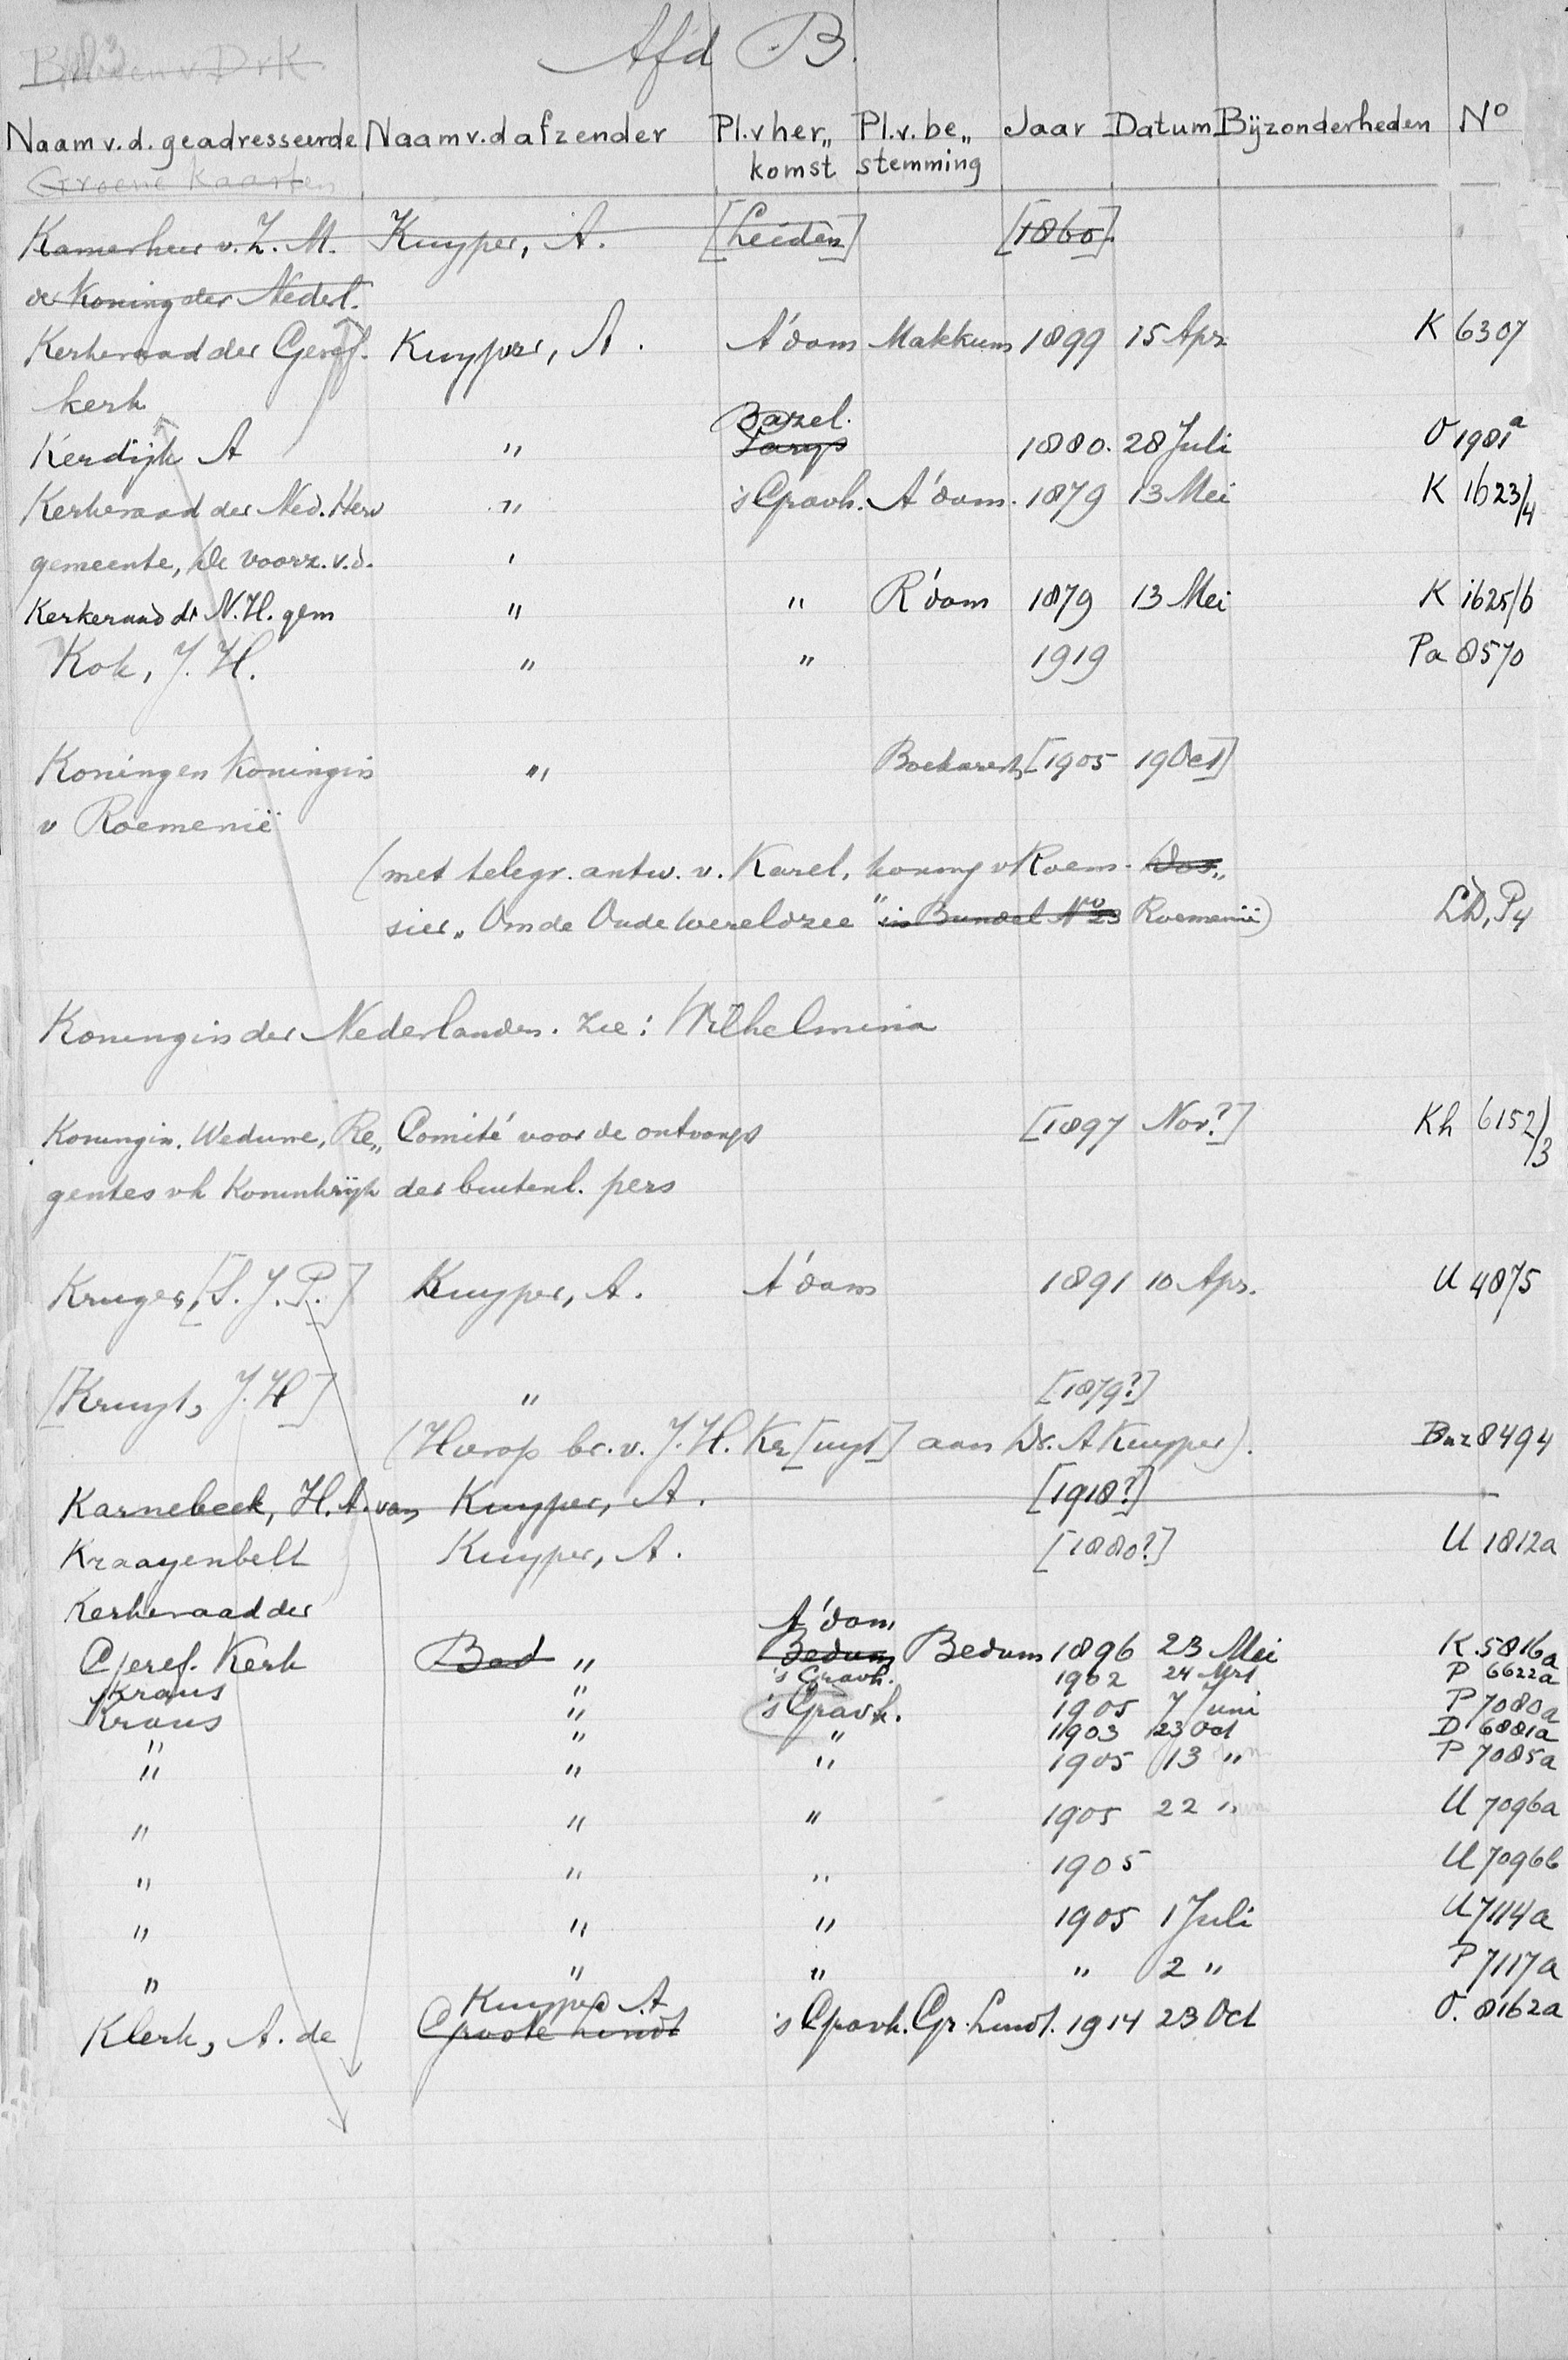 Afd B.
Naam v. d. geadresseerde Naam v. d afzender Pl. v her„ Pl. v. be„ Jaar Datum Bijzonderheden No
komst stemming
Groene Kaarten
Kamerheer v. Z. M. Kuyper, A. [Leiden] [1860].
de Koning der Nederl.
Kerkeraad der Geref. Kuyper, A. A'dam Makkum 1899 15 Apr K 6307
kerk
Bazel.
Kerdijk A " 1880. 28 Juli O 1981a
Kerkeraad der Ned. Herv " 's Gravh. A'dam. 1879 13 Mei K 1623/4
gemeente, De voorz. v. d. '
Kerkeraad dr N. H. gem " " R'dam 1879 13 Mei K 1625/6
Kok, J. H. " " 1919 Pa 8570
Koning en Koningin " Boekarest [1905 19 Oct]
v Roemenië
(met telegr. antw. v. Karel, koning v Roem. Dos„
sier „Om de Oude Wereldzee" in Bundel No 23 Roemenië) LD, P4
Koningin der Nederlanden. Zie: Wilhelmina
Koningin. Weduwe, Re„ Comité voor de ontvangst [1897 Nov?] Kh 6152/3
gentes vh Koninkrijk der buitenl. pers
Kruger, [S. J. P.] Kuyper, A. A'dam 1891 10 Apr. U 4875
[Kruyt, J. H] " [1879?]
(Hierop br. v. J. H. Kr[uyt] aan Dr. A Kuyper). Bnz 8494
Karnebeek, H. A. van Kuyper, A. [1918?]
Kraayenbelt Kuyper, A. [1880?] U 1812a
Kerkeraad der A'dam
Geref. Kerk Bed " Bedum Bedum 1896 23 Mei K 5816a
Kraus " 's Gravh. 1902 24 Mrt P 6622a
Kraus " 's Gravh. 1905 7 Juni P 7080a
" " " 1903 23 Oct D 6881a
" " " 1905 13 " P 7085a
" " " 1905 22 " U 7096a
" " " 1905 U 7096b
" " " 1905 1 Juli U 7114a
" " " " 2 " P 7117a
Kuyper A
Klerk, A. de Groote Lindt 's Gravh. Gr. Lindt. 1914 23 Oct O. 8162a